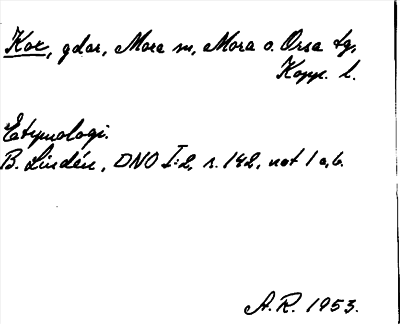 Kot, gdar, Mora sn, Mora o. Orsa tg,
Kopp. l.
Etymologi.
B. Lindén, DNO I:2, s. 142, not 1 o,6.
A.R. 1953.